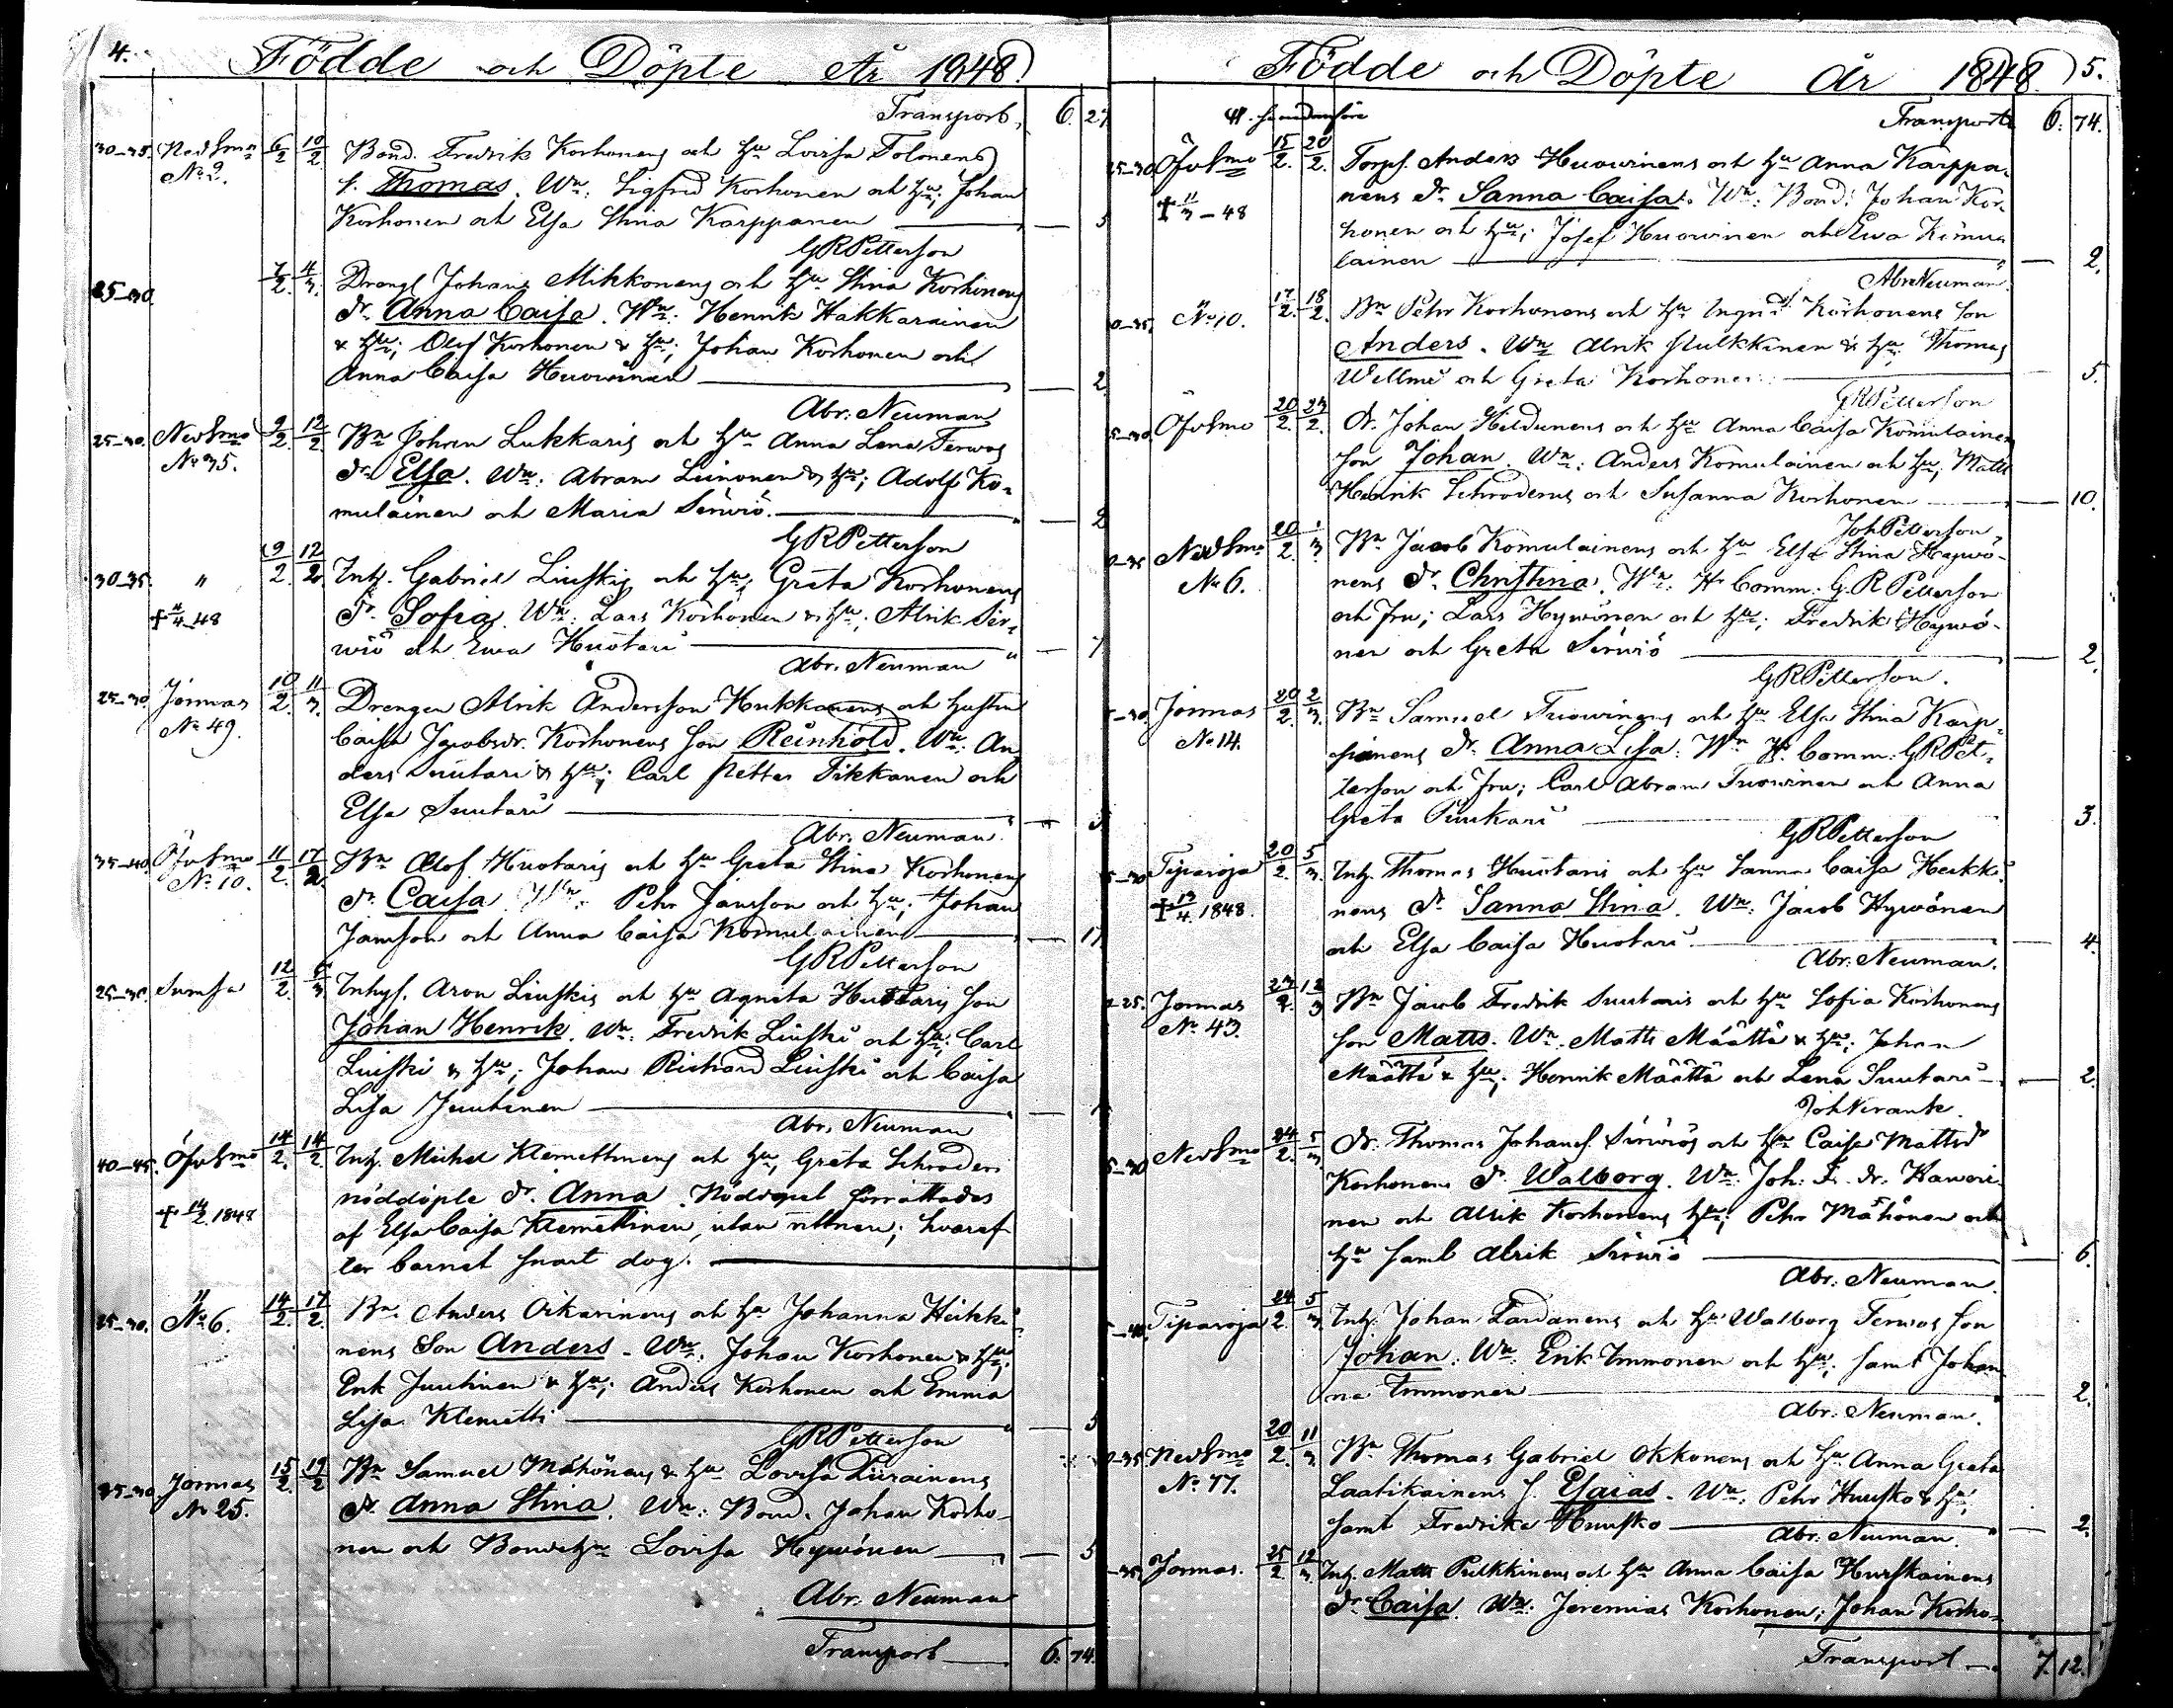 4.
Födde och Döpte År 1848.
Transport, 6. 27
30-35. Nedsmo 6/2 10/2 Bond. Fredrik Korhonens och hu Lovisa Tolonens
No 2. s. Thomas. Wn: Sigfrid Korhonen och hu; Johan
Korhonen och Elsa Stina Karppanen — 5
GRPetterson
25-30 7/2. 4/3. Drengs Johans Mikkonens och hu Stina Korhonens
dr. Anna Caisa. Wn: Henrik Hakkarainen
& hu; Olof Korhonen & hu; Johan Korhonen och
Anna Caisa Huovinen — 2
Abr. Neuman
25-30. Nedsmo 9/2. 12/2. Bn Johan Lukkaris och hu Anna Lena Terwos
No 35. dr Elsa. Wn: Abram Leinonen & hu; Adolf Ko-
mulainen och Maria Sirviö. — 2
GRPetterson
30-35. " 9/2. 12/2. Inh. Gabriel Liuskis och hu; Greta Korhonens
† 4/4-48 dr. Sofia. Wn: Lars Korhonen & hu; Alrik Sir-
wiö och Ewa Huotari — 7
Abr. Neuman
25-30. Jormas 10/2. 11/3. Drengen Alrik Andersson Hukkanens och hustru
No 49. Caisa Jacobsdr. Korhonens son Reinhold. Wn: An
ders Suutari & hu; Carl Petter Tikkanen och
Elsa Suutari —
Abr. Neuman.
35-40. Öfvsmo 11/2. 17/2. Bn Olof Huotaris och hu Greta Stina Korhonens
No 10. dr. Caisa Wn: Pehr Jansson och hu; Johan
Jansson och Anna Caisa Komulainen — 17
GRPetterson
25-30. Sumsa 12/2. 5/3 Inhys. Aron Liuskis och hu Agneta Huotaris son
Johan Henrik. Wn: Fredrik Liuski och hu; Carl
Liuski & hu; Johan Richard Liuski och Caisa
Lisa Juntunen —
Abr. Neuman
40-45. Öfvsmo 14/2. 14/2 Inh. Michel Klemettinens och hu, Greta Schroderi
† 14/2. 1848 nöddöpte dr. Anna. Nöddopet förrättades
af Elsa Caisa Klemettinen, utan vittnen; hvaref-
ter barnet snart dog. —
25-30. No 6. 14/2. 17/2. Bn. Anders Oikarinens och hu Johanna Heikki-
nens Son Anders. Wn: Johan Korhonen & hu;
Erik Juntunen & hu; Anders Korhonen och Emma
Lisa Klemetti — 5
GRPetterson
25-30 Jormas 15/2. 19/2 Bn Samuel Mähönens & hu Lovisa Piirainens
No 25. dr Anna Stina. Wn: Bond. Johan Korho-
nen och Bondehu Lovisa Hyvönen — 5
Abr. Neuman
Transport — 6. 74.
Födde och Döpte År 1848. 5.
Transport 6. 74.
25-30 Öfvsmo 15/2. 20/2. Torps. Anders Huovinens och hu Anna Karppa-
† 11/3-48 nens dr. Sanna Caisa. Wn: Bond: Johan Kor-
honen och hu; Josef Huovinen och Ewa Kemu
lainen — 2.
Abr.Neuman.
No 10. 17/2. 18/2. Bn Pehr Korhonens och hu Ingrid Korhonens son
Anders. Wn Alrik Pulkkinen & hu; Thomas
Wellmi och Greta Korhonen — 5.
GRPetterson
Öfvsmo 20/2. 23/2. D. Johan Heldunens och hu Anna Caisa Komulainens
son Johan. Wn: Anders Komulainen och hu; Matts
Henrik Schroderus och Susanna Korhonen — 10.
JohPetterson,
Nedsmo 20/2. 1/3 Bn Jacob Komulainens och hu Elsa Stina Hyvö-
No 6. nens dr. Christina. Wn: Hr Comm: G.R Petterson
och fru; Lars Hyvönen och hu; Fredrik Hyvö-
nen och Greta Sirviö — 2.
GRPetterson.
Jormas 20/2. 2/3. Bn Samuel Tuovinens och hu Elsa Stina Karp-
No 14. panens dr. Anna Lisa: Wn Hr. Comm: GRPet-
terson och fru; Carl Abram Tuovinen och Anna
Greta Puukari — 3.
GRPetterson
Tiparoja 20/2. 5/3. Inh. Thomas Huotaris och hu Sanna Caisa Heikki-
† 13/4. 1848. nens dr Sanna Stina. Wn: Jacob Hyvönen
och Elsa Caisa Huotari — 4.
Abr. Neuman.
25. Jormas 23/2. 12/3 Bn Jacob Fredrik Suutaris och hu Sofia Korhonens
No 43. son Matts. Wn. Matts Määttä & hu; Johan
Määttä & hu; Henrik Määttä och Lena Suutari — 2.
Nedsmo 24/2. 5/3. Dr. Thomas Johans. Sirviös och hu Caisa Mattsdr
Korhonens dr. Walborg. Wn: Joh: Fr. Kaveri-
nen och Alrik Korhonens hu; Pehr Mähönen och
hu samt Alrik Sirviö — 6.
Abr. Neuman.
Tiparoja 24/2. 5/3. Inh. Johan Tardanens och hu Walborg Terwos son
Johan. Wn: Erik Immonen och hu; samt Johan
na Immonen — 2.
Abr. Neuman.
Nedsmo 20/2. 11/3 Bn Thomas Gabriel Okkonens och hu Anna Greta
No 77. Laatikainens s. Esaias. Wn: Pehr Huusko & hu;
samt Fredrika Huusko — 2.
Abr. Neuman.
Jormas. 25/2. 12/3. Inh. Matts Pulkkinens och hu Anna Caisa Hurskainens
dr Caisa. Wn: Jeremias Korhonen; Johan Korho-
Transport — 7. 12.